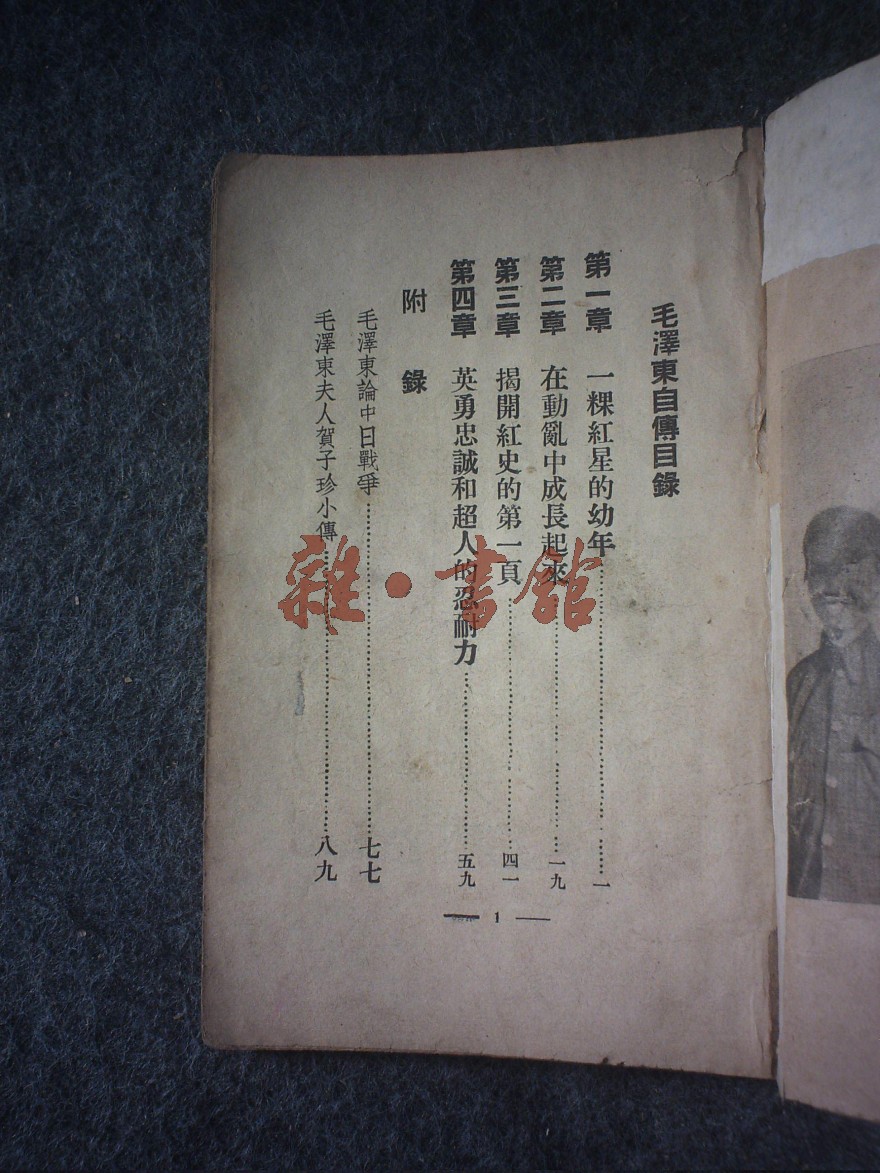 毛澤東自傳目錄
第一章 一粿紅星的幼年……一
第二章 在動亂中成長起來……一九
第三章 揭開紅史的第一頁……四一
第四章 英勇忠誠和超人的忍耐力……五九
附錄
毛澤東論中日戰爭……七七
毛澤東夫人賀子珍小傳……八九
— 1 —
雜·書館